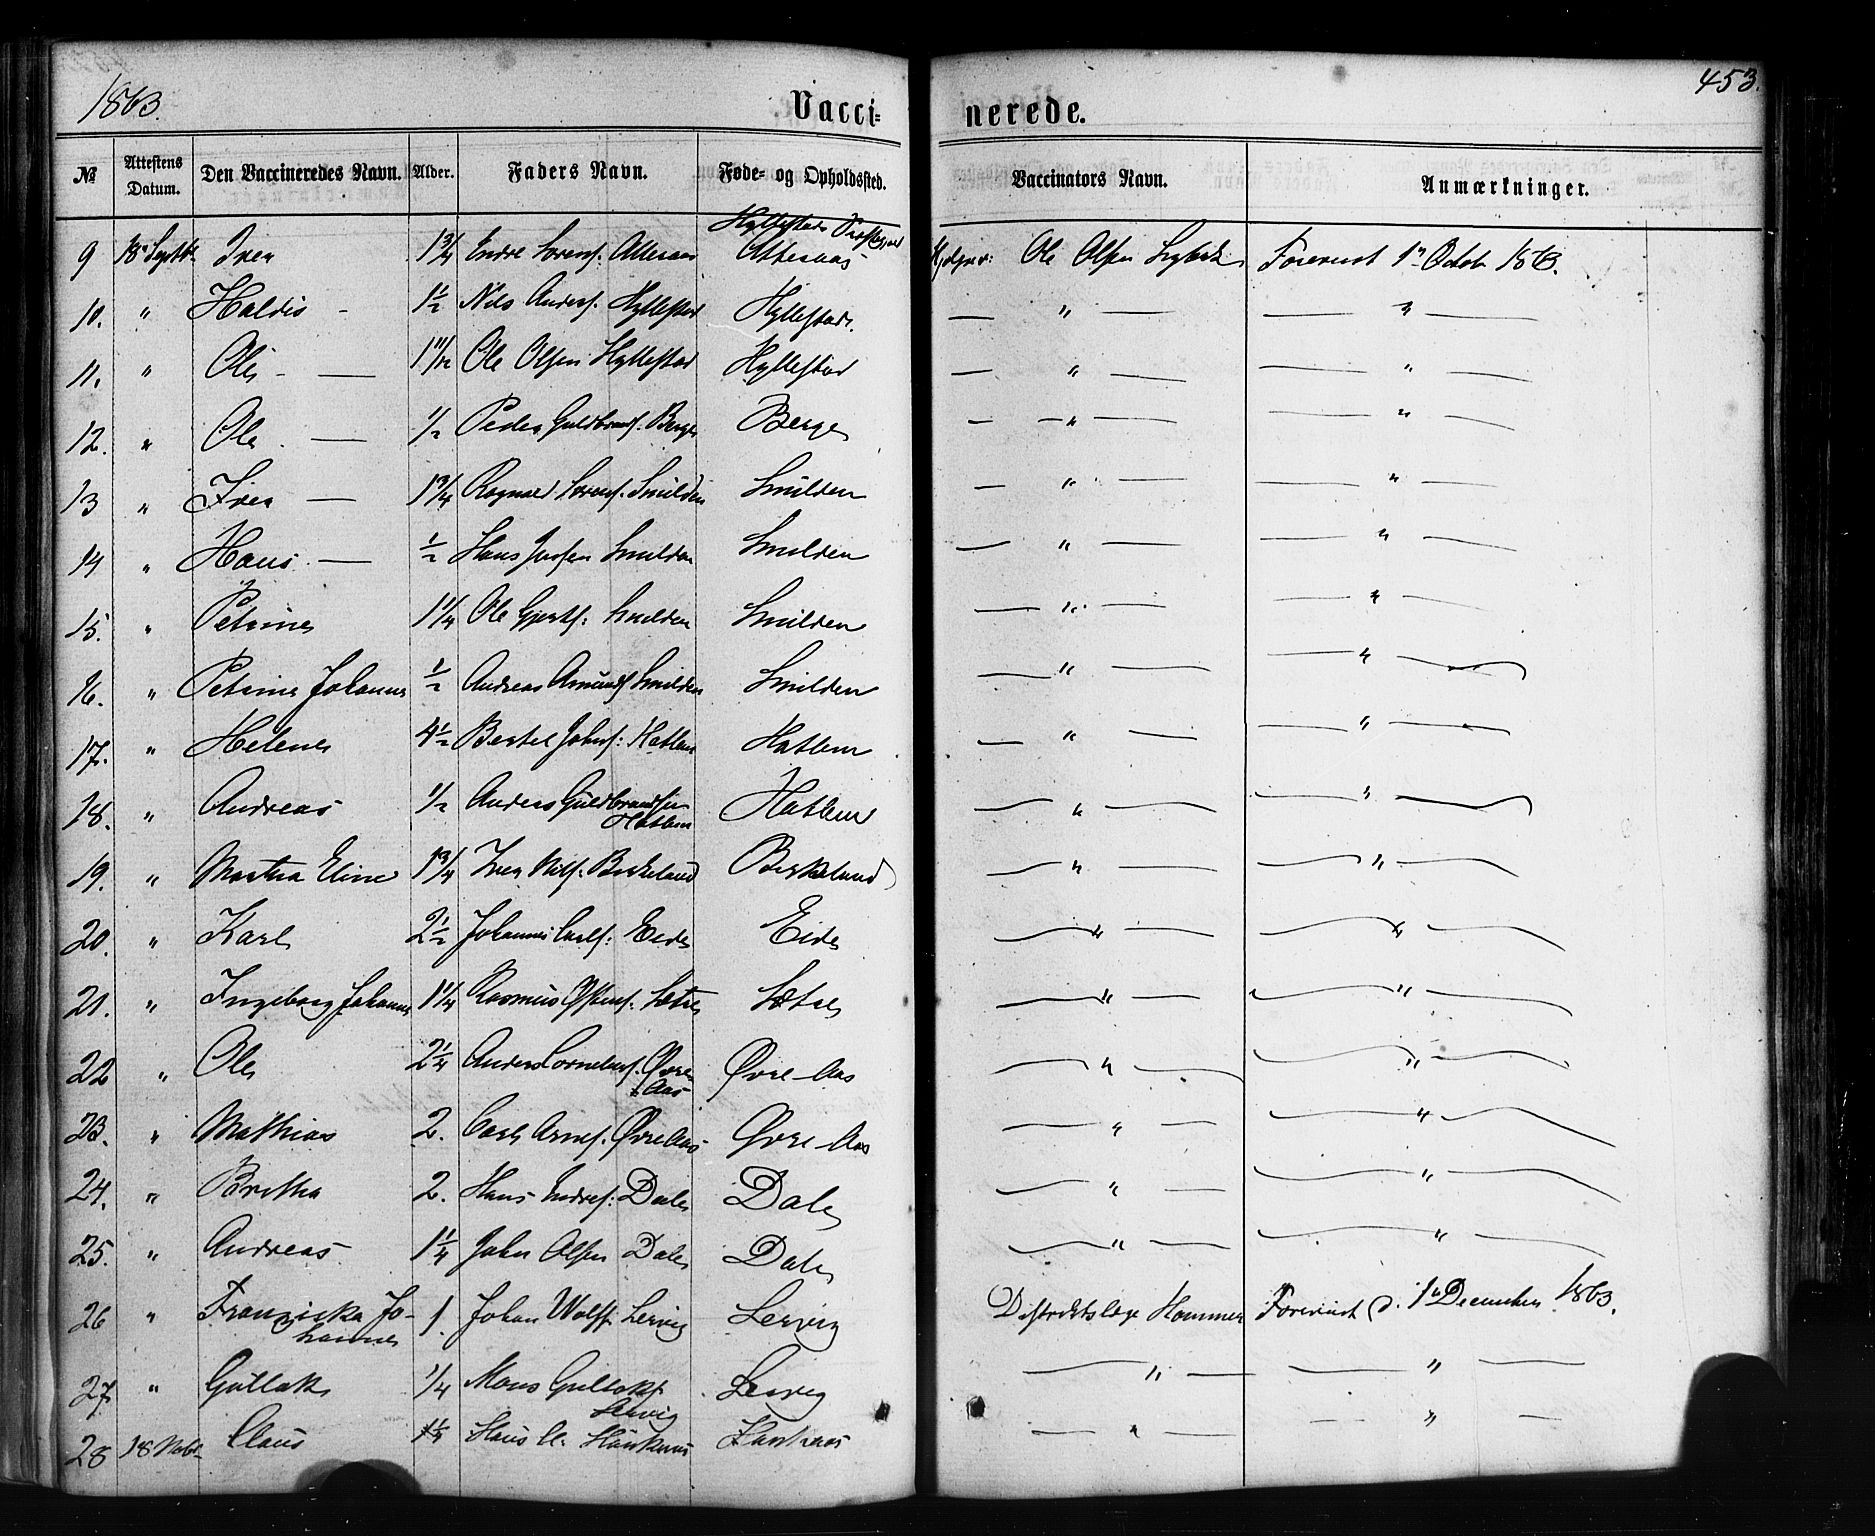 1863.
Vacci= nerede.
453.
№ Attestens Datum. Den Vaccineredes Navn. Alder. Faders Navn. Føde- og Opholdssted. Vaccinators Navn. Anmærkninger.
Hyllestad Præstegjeld
9 18 Septbr Iver 1 3/4 Endre Sørens. Atteraas Atteraas Hjelpev: Ole Olsen Foreviist 1n Octob. 1863.
10. " Haldis - 1 1/2 Nils Anders. Hyllestad Hyllestad. — " — — " —
11. " Ole - — 1 11/12 Ole Olsen Hyllestad Hyllestad — " — — " —
12. " Ole. — 1/2 Peder Guldbrands. Berge Berge — " — — " —
13 " Iver — 1 3/4 Ragnald Sørens. Smilden Smilden — " — — " —
14 " Hans. — 1/2 Hans Jensen Smilden Smilden — " — — " —
15. " Petrine 1 1/4 Ole Gjerts: Smilden Smilden — " — — " —
16. " Petrine Johanne 1/2 Andreas Amunds Smilden Smilden — " — — " —
17. " Helene 4 1/2 Bertel Johns: Hatlem Hatlem — " — — " —
18. " Andreas 1/2 Anders Guldbrandsen Hatlem Hatlem — " — — " —
19. " Martha Eline 1 3/4 Iver Nils. Birkeland Birkeland — " — — " —
20. " Karl 2 1/2 Johannes Carls: Eide Eide — " — — " —
21. " Ingeborg Johanne 1 1/4 Rasmus Øftens. Sætre Sætre — " — — " —
22 " Ole 2 1/4 Anders Cornelius. Øvre- Aas Øvre-Aas — " — — " —
23. " Mathias 2. Carl Arnes. Øvre Aas Øvre-Aas — " — — " —
24. " Britha 2. Hans Endres: Dale Dale — " — — " —
25. " Andreas 1 1/4 John Olsen Dale Dale — " — — " —
26 " Franziska Jo- hanne 1. Johan Wolff. Lervig Lervig Distrctslæge Hammer Foreviist d. 1n December 1863.
27. " Gullak 1/4 Mons Gullaks. Lervig Lervig — " — — " —
28 18 Nobr. Claus Hans C. — " — — " —